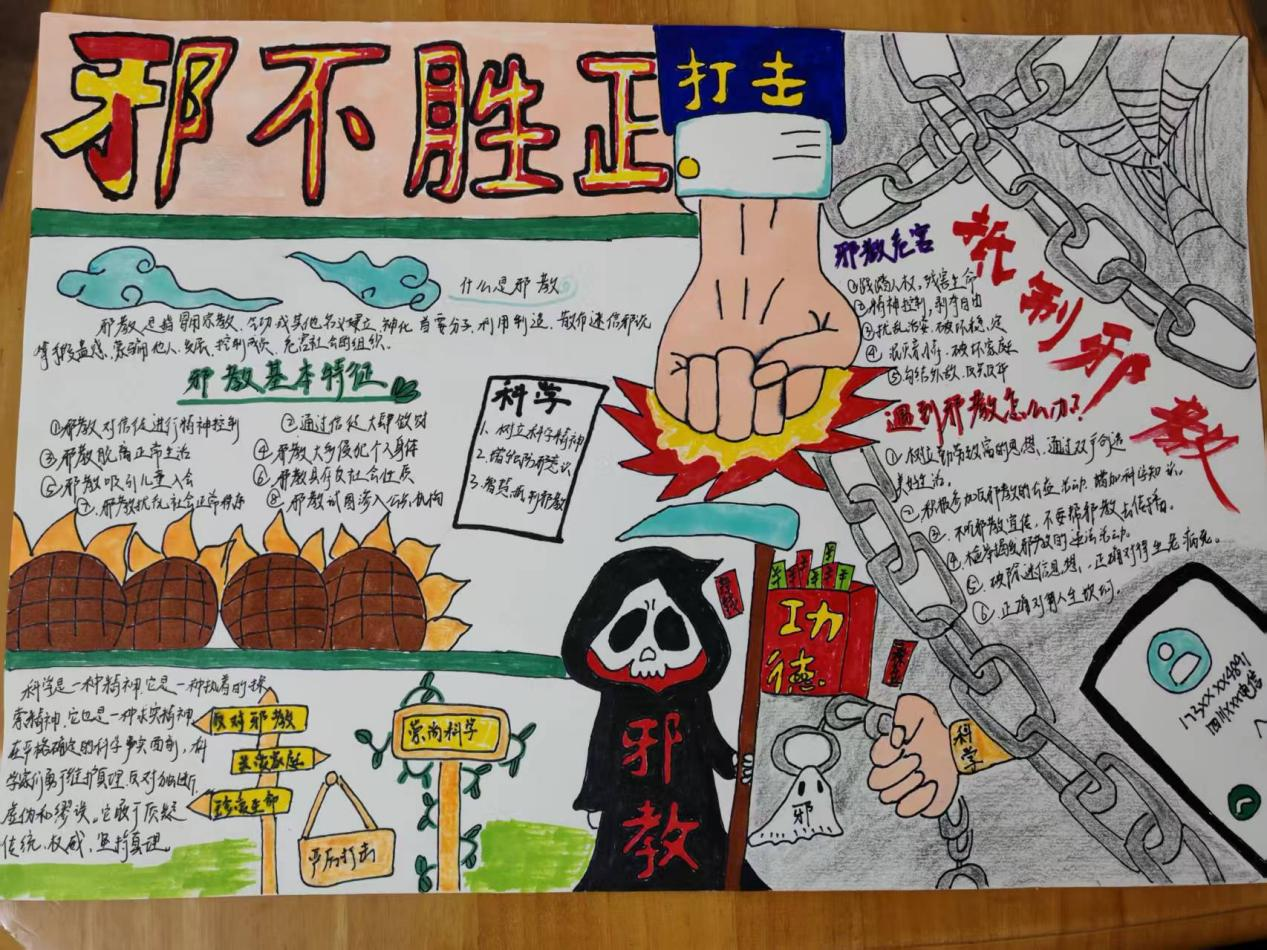 邪不胜正
打击
什么是邪教
邪教是指冒用宗教、气功或其他名义建立,神化首要分子,利用制造、散布迷信邪说
等手段蛊惑、蒙骗他人,发展、控制成员,危害社会的组织。
邪教基本特征
①邪教对信徒进行精神控制
②通过信徒大肆敛财
③邪教脱离正常生活
④邪教大多侵犯个人身体
⑤邪教吸引儿童入会
⑥邪教具有反社会性质
⑦邪教扰乱社会正常秩序
⑧邪教试图渗入公共机构
科学
1.树立科学精神
2.增强防邪意识
3.智慧 邪教
邪教危害
①践踏人权,残害生命
②精神控制,剥夺自由
③扰乱治安,破坏稳定
④ 破坏家庭
⑤勾结外敌,
抵制邪教
遇到邪教怎么办?
①树立勤劳致富的思想,通过双手创造
美好生活。
②积极参加反邪教的公益活动,增加科学知识。
③不听邪教宣传,不要帮邪教去传播。
④检举揭发邪教的违法活动。
⑤破除迷信思想,正确对待生老病死。
⑥正确对待人生坎坷。
科学是一种精神,它是一种执着的探
索精神,它也是一种求实精神
在严格确定的科学事实面前,科
学家们勇于维护真理,反对独断、
虚伪和谬误。它敢于质疑
传统、权威,坚持真理。
反对邪教
关爱家庭
珍爱生命
崇尚科学
严厉打击
功
德
邪教
邪
科学
173xxxx4891
四川xxx电信